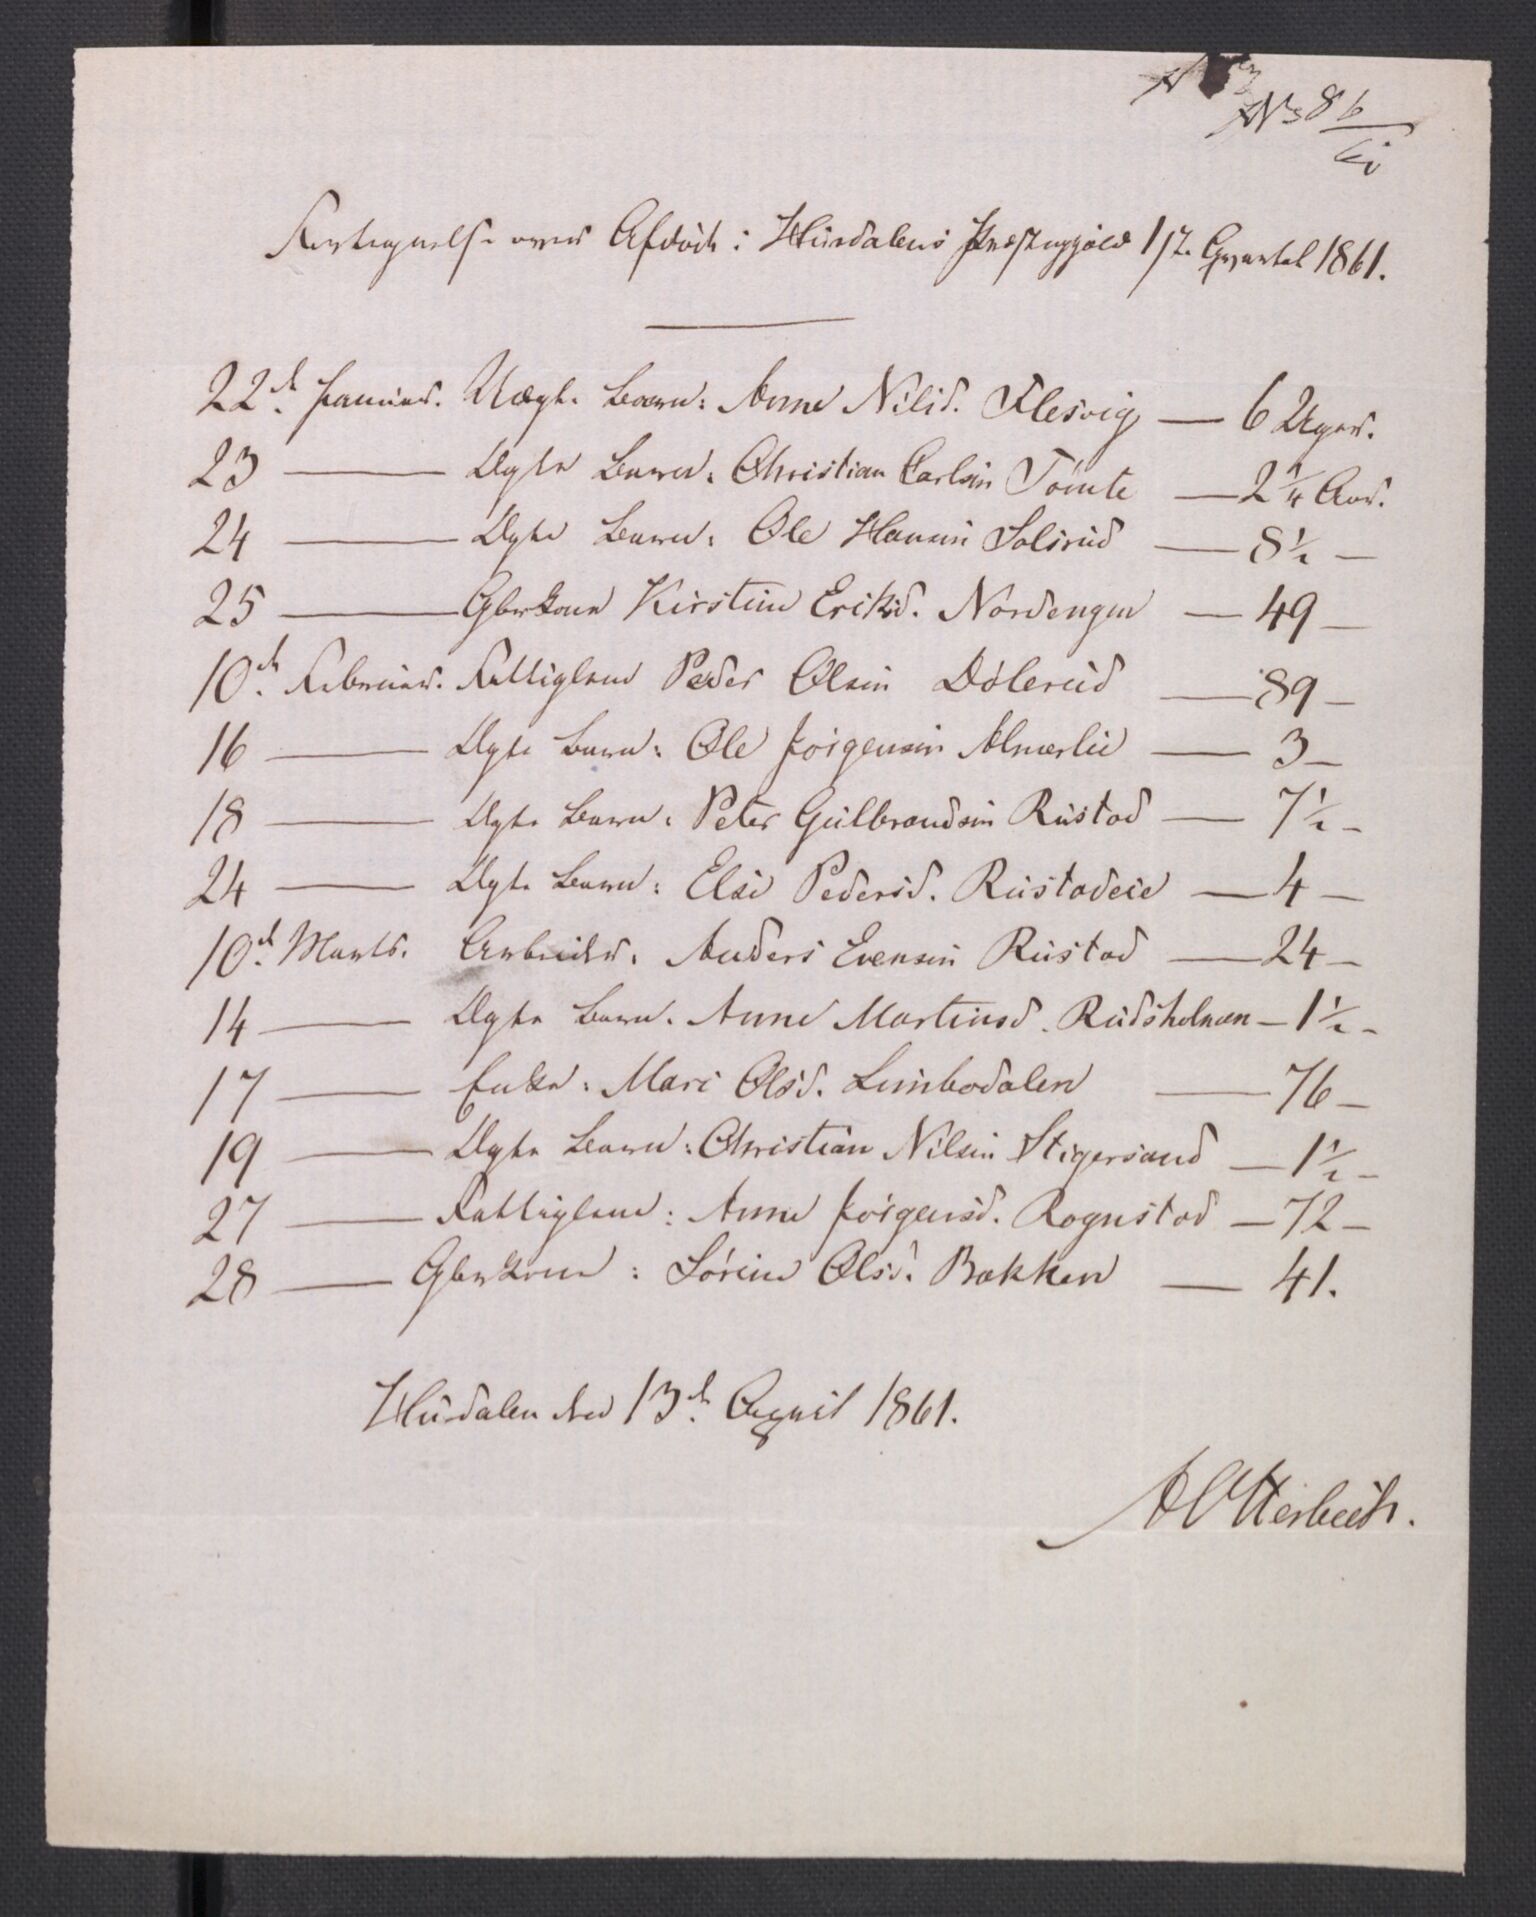 No 86
Fortegnelse over Afdøde i Hurdalens Præstegjæld 1ste Qvartal 1861.
22d. Januar. Uægte Barn: Anne Nilsd. Flesvig — 6 Uger.
23 — Ægte Barn: Christian Carlsen Tømte — 2 1/4 Aar.
24 — Ægte Barn: Ole Hansen Solsrud — 8 1/2 —
25 — Gbrkone Kirstine Eriksd. Nordengen — 49 —
10de Februar. Fattiglem Peder Olsen Dølerud — 89 —
16 — Ægte Barn: Ole Jørgensen Almerlie — 3 —
18 — Ægte Barn: Peter Gulbrandsen Rustad — 7 1/2 —
24 — Ægte Barn: Else Pedersd. Rustadeie — 4 —
10d. Marts. Arbeider: Anders Evensen Rustad — 24 —
14 — Ægte Barn: Anne Martinsd. Rudsholmen — 1 1/2 —
17 — Enke: Mari Olsd. Limbodalen — 76 —
19 — Ægte Barn: Christian Nilsen Stigersand — 1 1/2 —
27 — Fattiglem: Anne Jørgensd. Rognstad — 72 —
28 — Gbrkone: Sørine Olsd. Bakken — 41.
Hurdalen den 13d. April 1861.
A Otterbech.